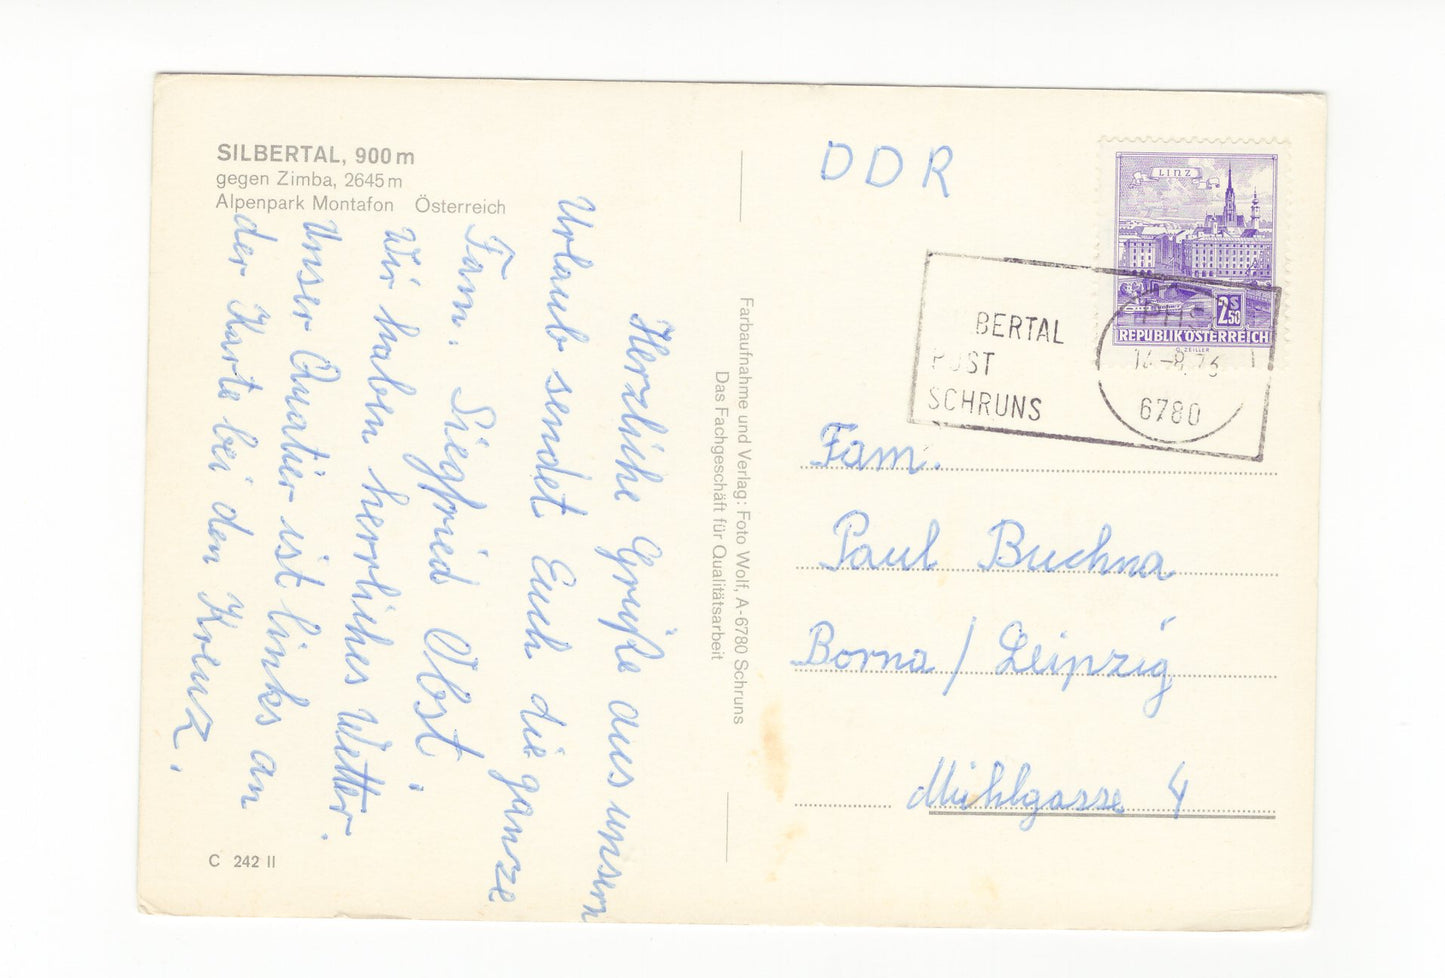 SILBERTAL, 900 m
gegen Zimba, 2645 m
Alpenpark Montafon Österreich
Herzliche Grüße aus unserm
Urlaub sendet Euch die ganze
Fam. Siegfried Obst.
Wir haben herrliches Wetter.
Unser Quatier ist links an
der Karte bei den Kreuz.
C 242 II
Farbaufnahme und Verlag: Foto Wolf, A-6780 Schruns
Das Fachgeschäft für Qualitätsarbeit
DDR
LINZ
2 S 50
REPUBLIK ÖSTERREICH
G. ZEILER
BERTAL
POST
SCHRUNS
6780
Fam.
Paul Buchna
Borna / Leipzig
Mühlgasse 4